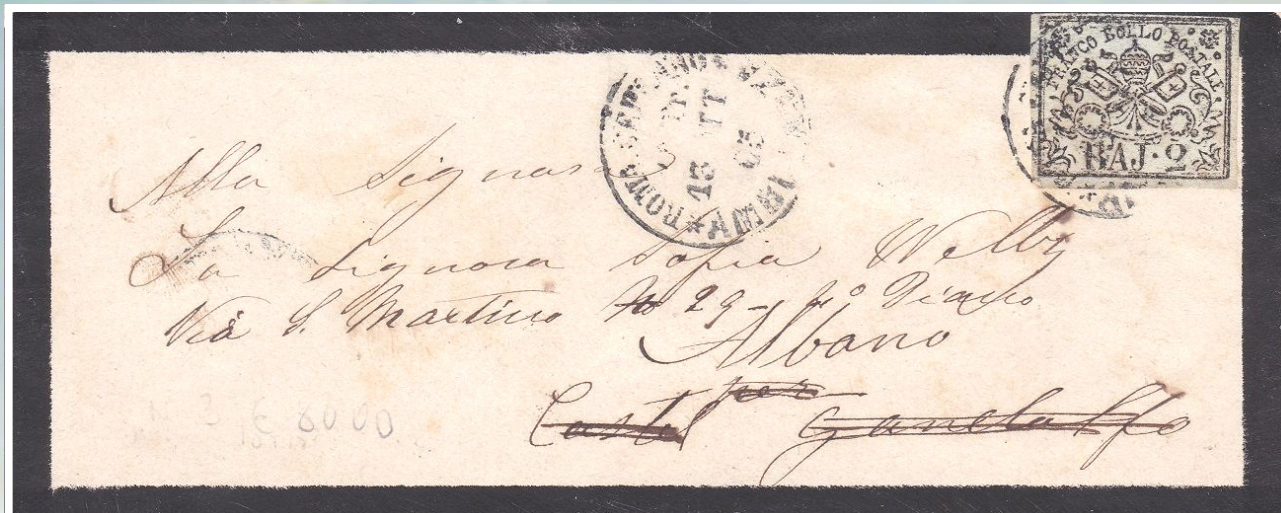 FRANCO BOLLO POSTALE
BAJ · 2
ROMA
13
65
Alla Signora
La Signora Sofia Welby
Via S. Martino No 29 - Piano
Albano
per
Castel Gandolfo